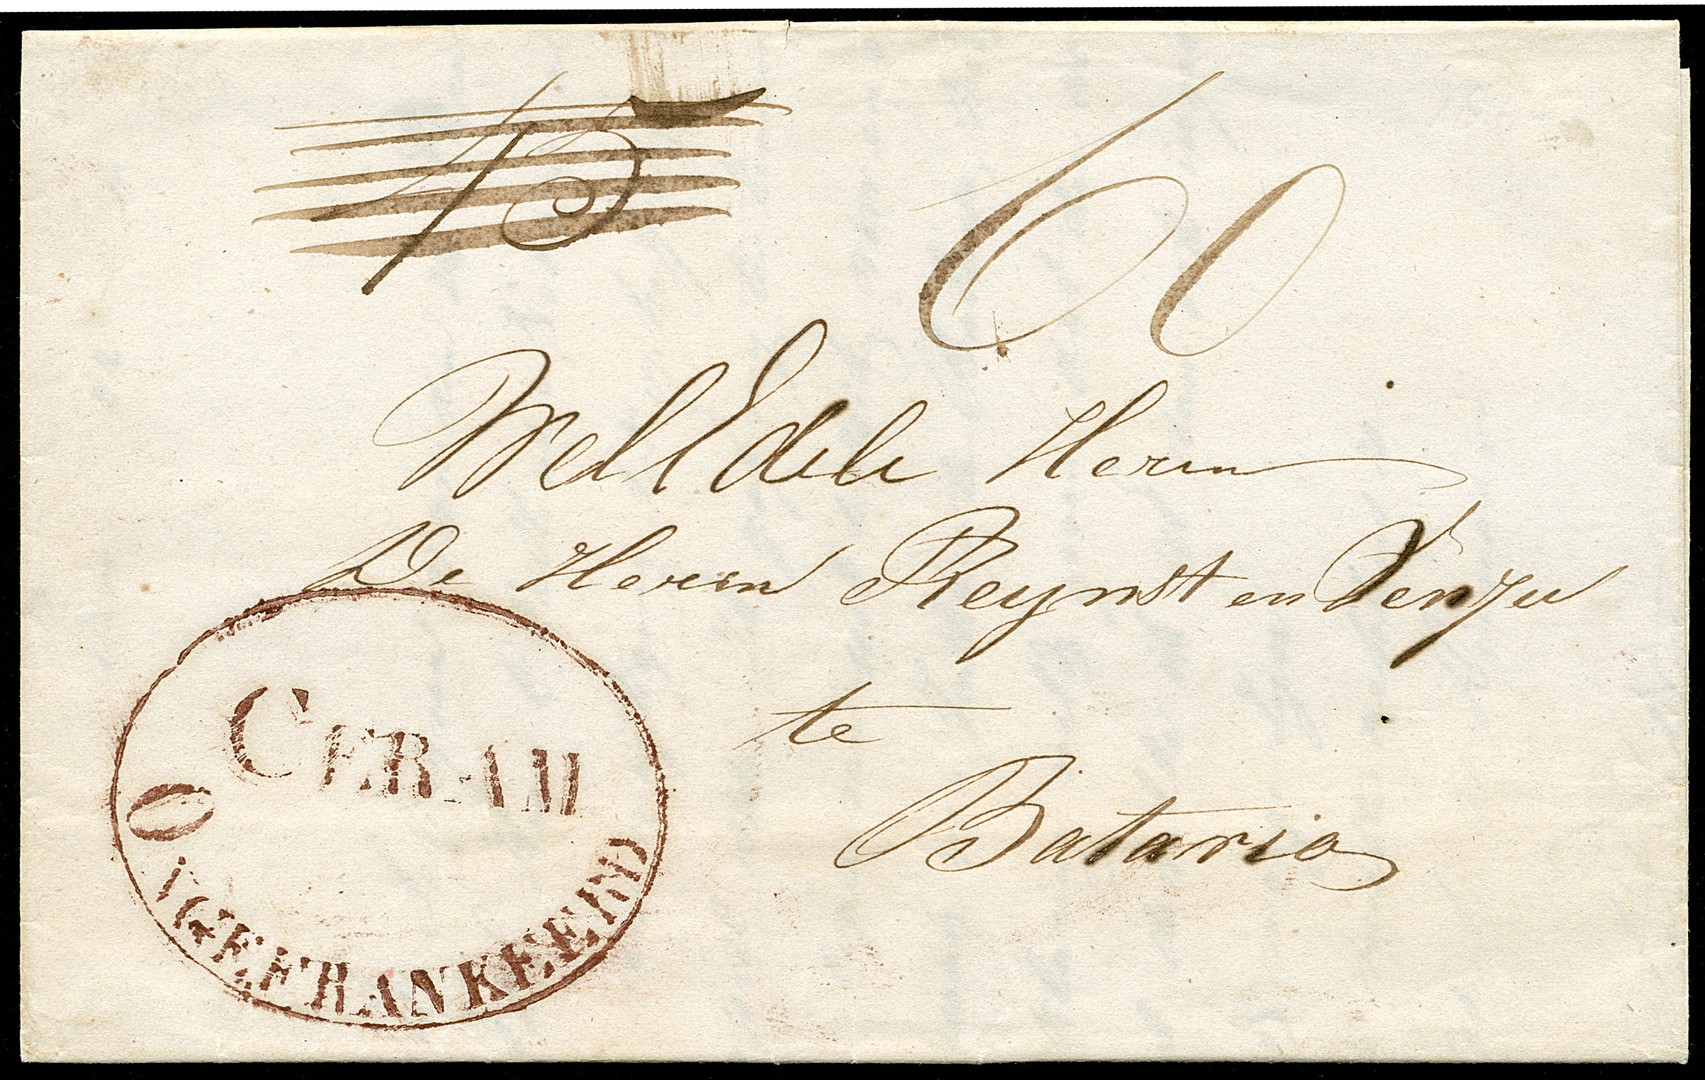 15 60
WelEdele Heren
De Heren Reynst en Vinju
te
Batavia
CERAM
ONGEFRANKEERD